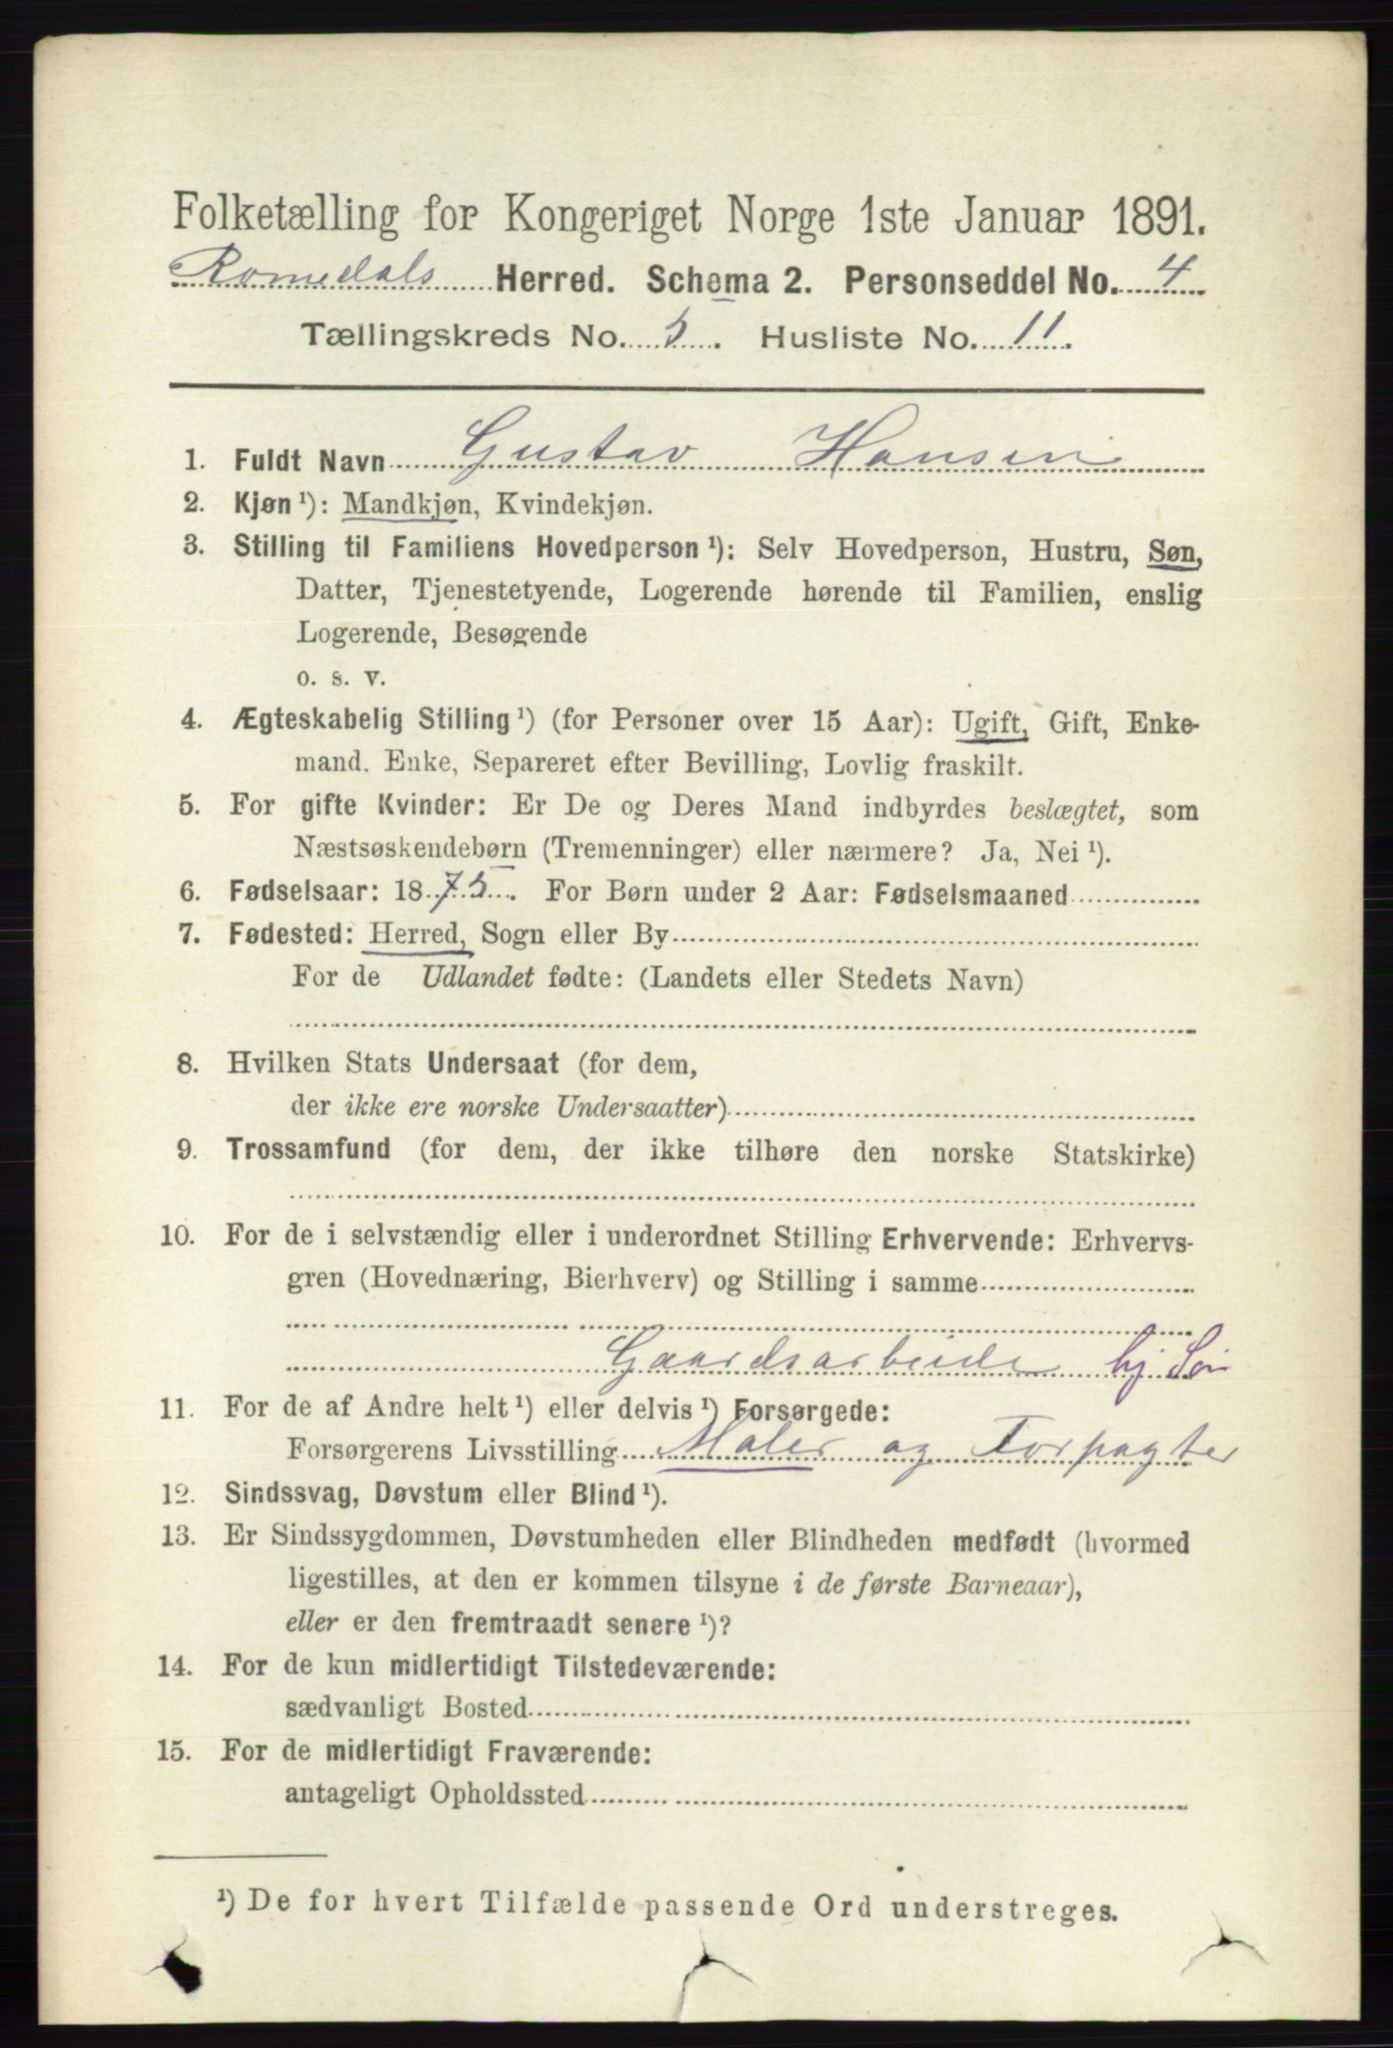 Folketælling for Kongeriget Norge 1ste Januar 1891.
Romedals Herred. Schema 2. Personseddel No. 4
Tællingskreds No. 5. Husliste No. 11.
1. Fuldt Navn Gustav Hansen
2. Kjøn ¹): Mandkjøn, Kvindekjøn.
3. Stilling til Familiens Hovedperson ¹): Selv Hovedperson, Hustru, Søn,
Datter, Tjenestetyende, Logerende hørende til Familien, enslig
Logerende, Besøgende
o. s. v.
4. Ægteskabelig Stilling ¹) (for Personer over 15 Aar): Ugift, Gift, Enke-
mand. Enke, Separeret efter Bevilling, Lovlig fraskilt.
5. For gifte Kvinder: Er De og Deres Mand indbyrdes beslægtet, som
Næstsøskendebørn (Tremenninger) eller nærmere? Ja, Nei ¹).
6. Fødselsaar: 1875. For Børn under 2 Aar: Fødselsmaaned
7. Fødested: Herred, Sogn eller By
For de Udlandet fødte: (Landets eller Stedets Navn)
8. Hvilken Stats Undersaat (for dem,
der ikke ere norske Undersaatter)
9. Trossamfund (for dem, der ikke tilhøre den norske Statskirke)
10. For de i selvstændig eller i underordnet Stilling Erhvervende: Erhvervs-
gren (Hovednæring, Bierhverv) og Stilling i samme
Gaardsarbeide hj. Søn
11. For de af Andre helt ¹) eller delvis ¹) Forsørgede:
Forsørgerens Livsstilling Maler og Forpagter
12. Sindssvag, Døvstum eller Blind ¹).
13. Er Sindssygdommen, Døvstumheden eller Blindheden medfødt (hvormed
ligestilles, at den er kommen tilsyne i de første Barneaar),
eller er den fremtraadt senere ¹)?
14. For de kun midlertidigt Tilstedeværende:
sædvanligt Bosted
15. For de midlertidigt Fraværende:
antageligt Opholdssted
¹) De for hvert Tilfælde passende Ord understreges.